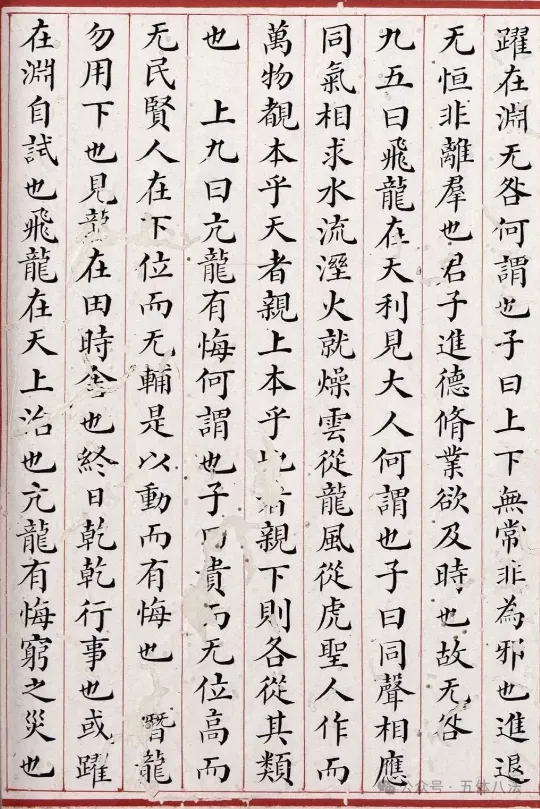 躍在淵无咎何謂也子曰上下無常非為邪也進退
无恒非離羣也君子進德脩業欲及時也故无咎
九五曰飛龍在天利見大人何謂也子曰同聲相應
同氣相求水流溼火就燥雲從龍風從虎聖人作而
萬物覩本乎天者親上本乎地者親下則各從其類
也 上九曰亢龍有悔何謂也子曰貴而无位高而
无民賢人在下位而无輔是以動而有悔也 潛龍
勿用下也見龍在田時舍也終日乾乾行事也或躍
在淵自試也飛龍在天上治也亢龍有悔窮之災也
公众号 · 五体八法